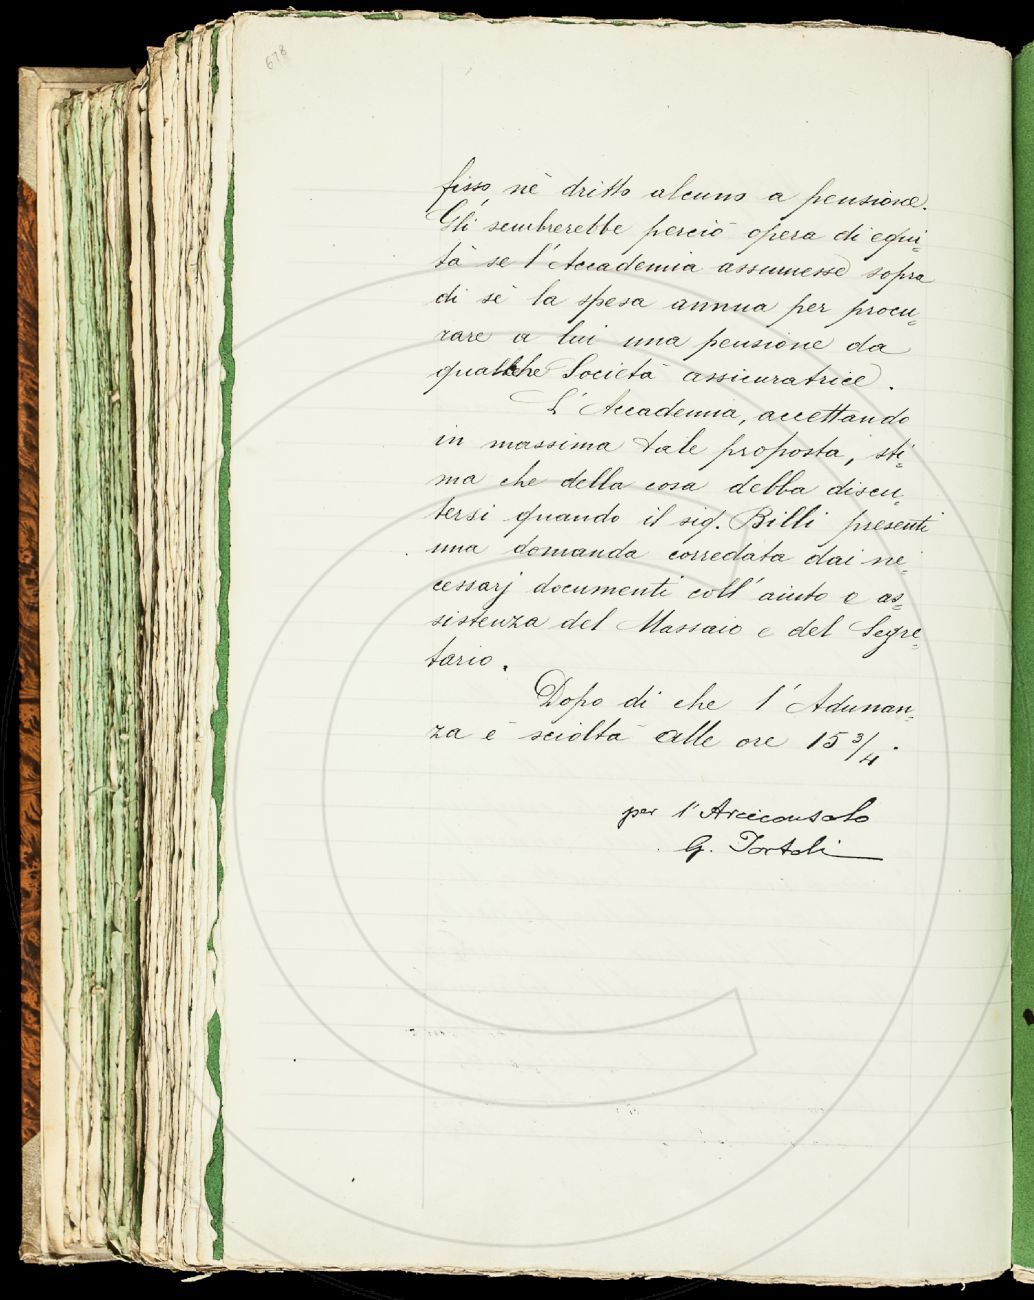 678
fisso nè dritto alcuno a pensione.
Gli sembrerebbe perciò opera di equi-
tà se l'Accademia assumesse sopra
di sè la spesa annua per procu-
rare a lui una pensione da
qualche Società assicuratrice.
L'Accademia, accettando
in massima tale proposta, sti-
ma che della cosa debba discu-
tersi quando il sig. Billi presenti
una domanda corredata dai ne-
cessarj documenti coll'aiuto e as-
sistenza del Massaio e del Segre-
tario.
Dopo di che l'Adunan-
za è sciolta alle ore 15 3/4.
per l'Arciconsolo
G. Tortoli